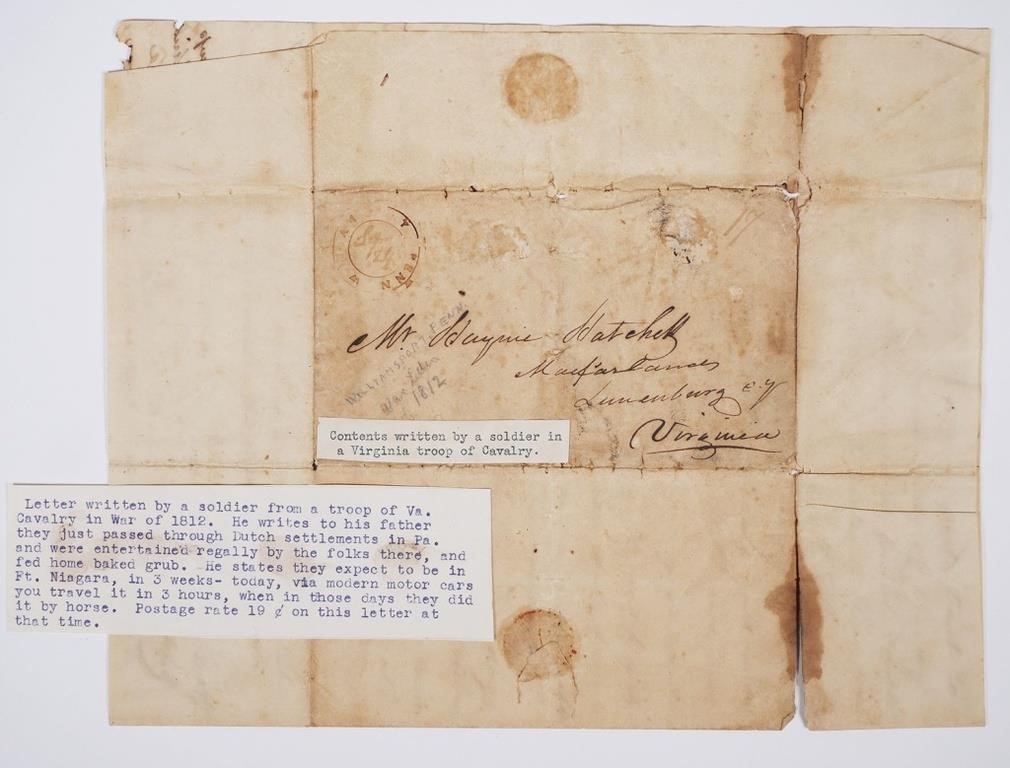 PENNA
Sep
17
Mr. Haynie Hatchett
Macfarlands
Lunenburg C.y
Virginia
WILLIAMSPORT, PENN.
War Letter
1812
Contents written by a soldier in
a Virginia troop of Cavalry.
Letter written by a soldier from a troop of Va.
Cavalry in War of 1812. He writes to his father
they just passed through Dutch settlements in Pa.
and were entertained regally by the folks there, and
fed home baked grub. He states they expect to be in
Ft. Niagara, in 3 weeks- today, via modern motor cars
you travel it in 3 hours, when in those days they did
it by horse. Postage rate 19 ¢ on this letter at
that time.